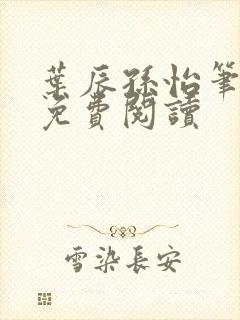 葉辰孫怡筆
免費閱讀
雪染長安